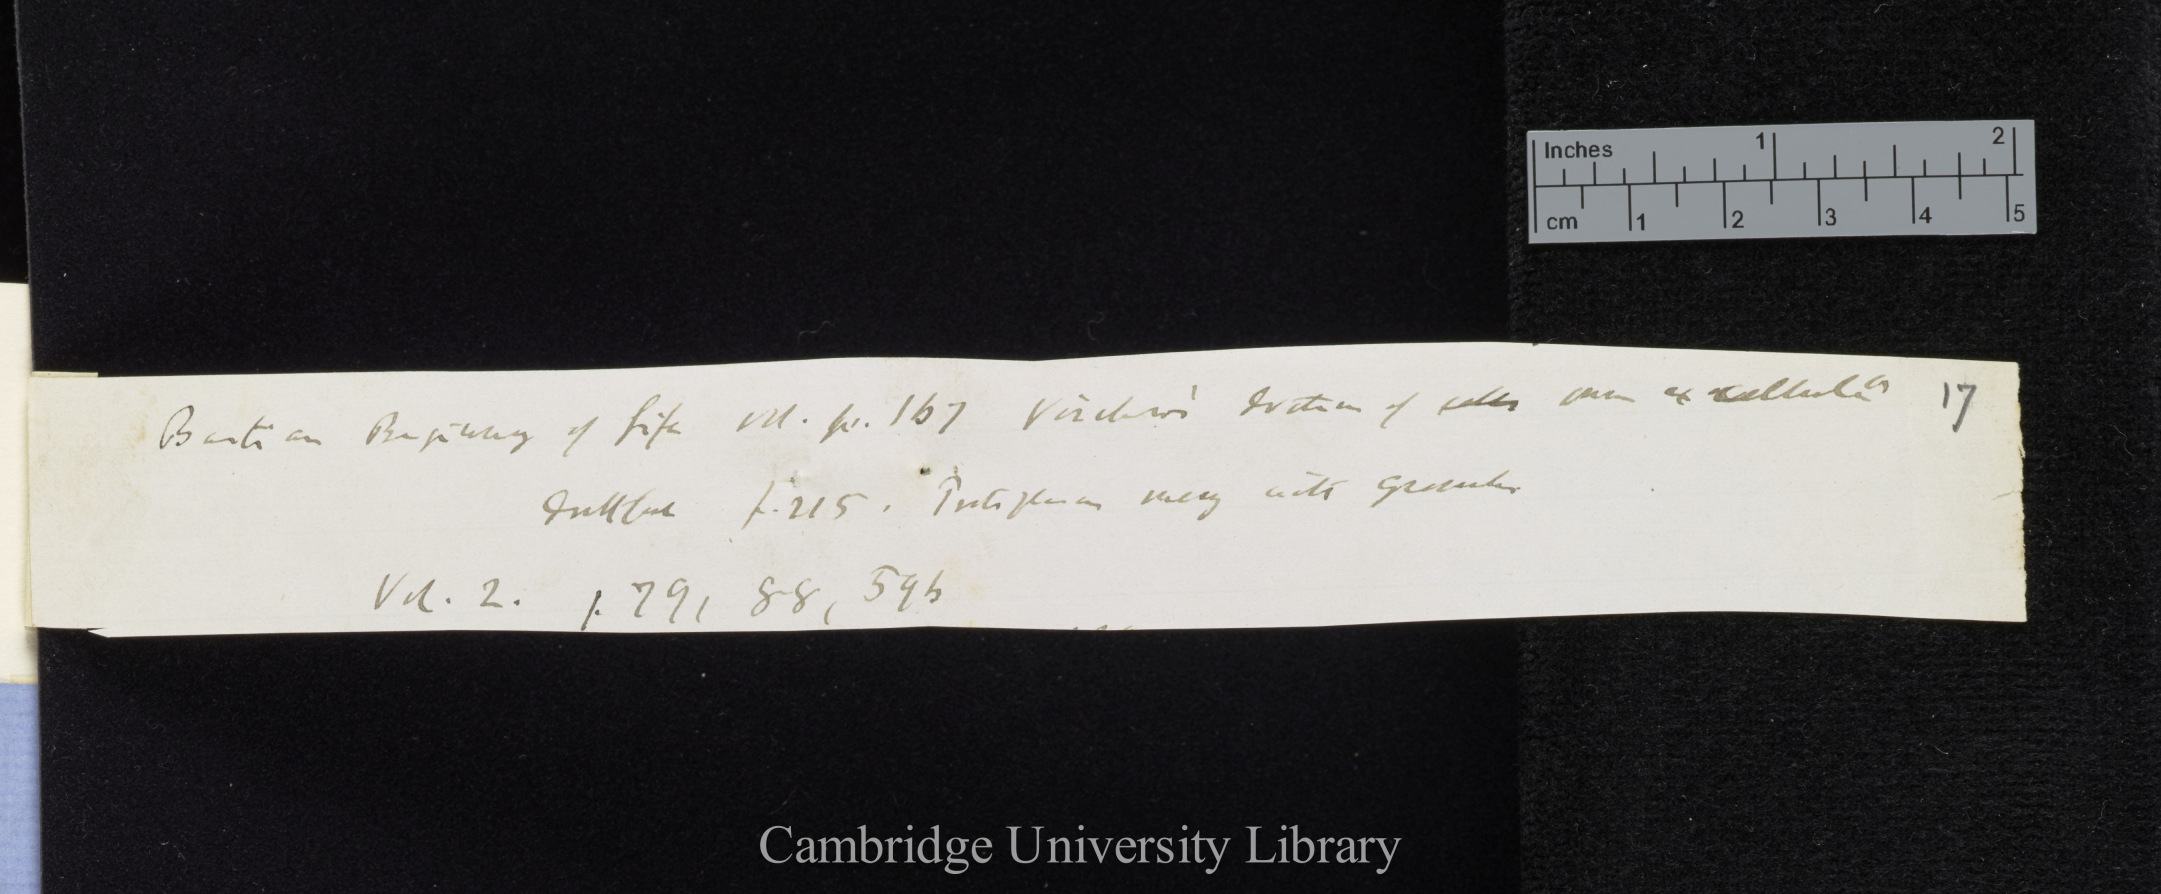 Inches 1 2
cm 1 2 3 4 5
Bastian Beginning of Life vol. p. 167 Virchow's of cells own 17
p. 215. Protoplasm with granules
Vol. 2. p. 79, 88, 596
Cambridge University Library